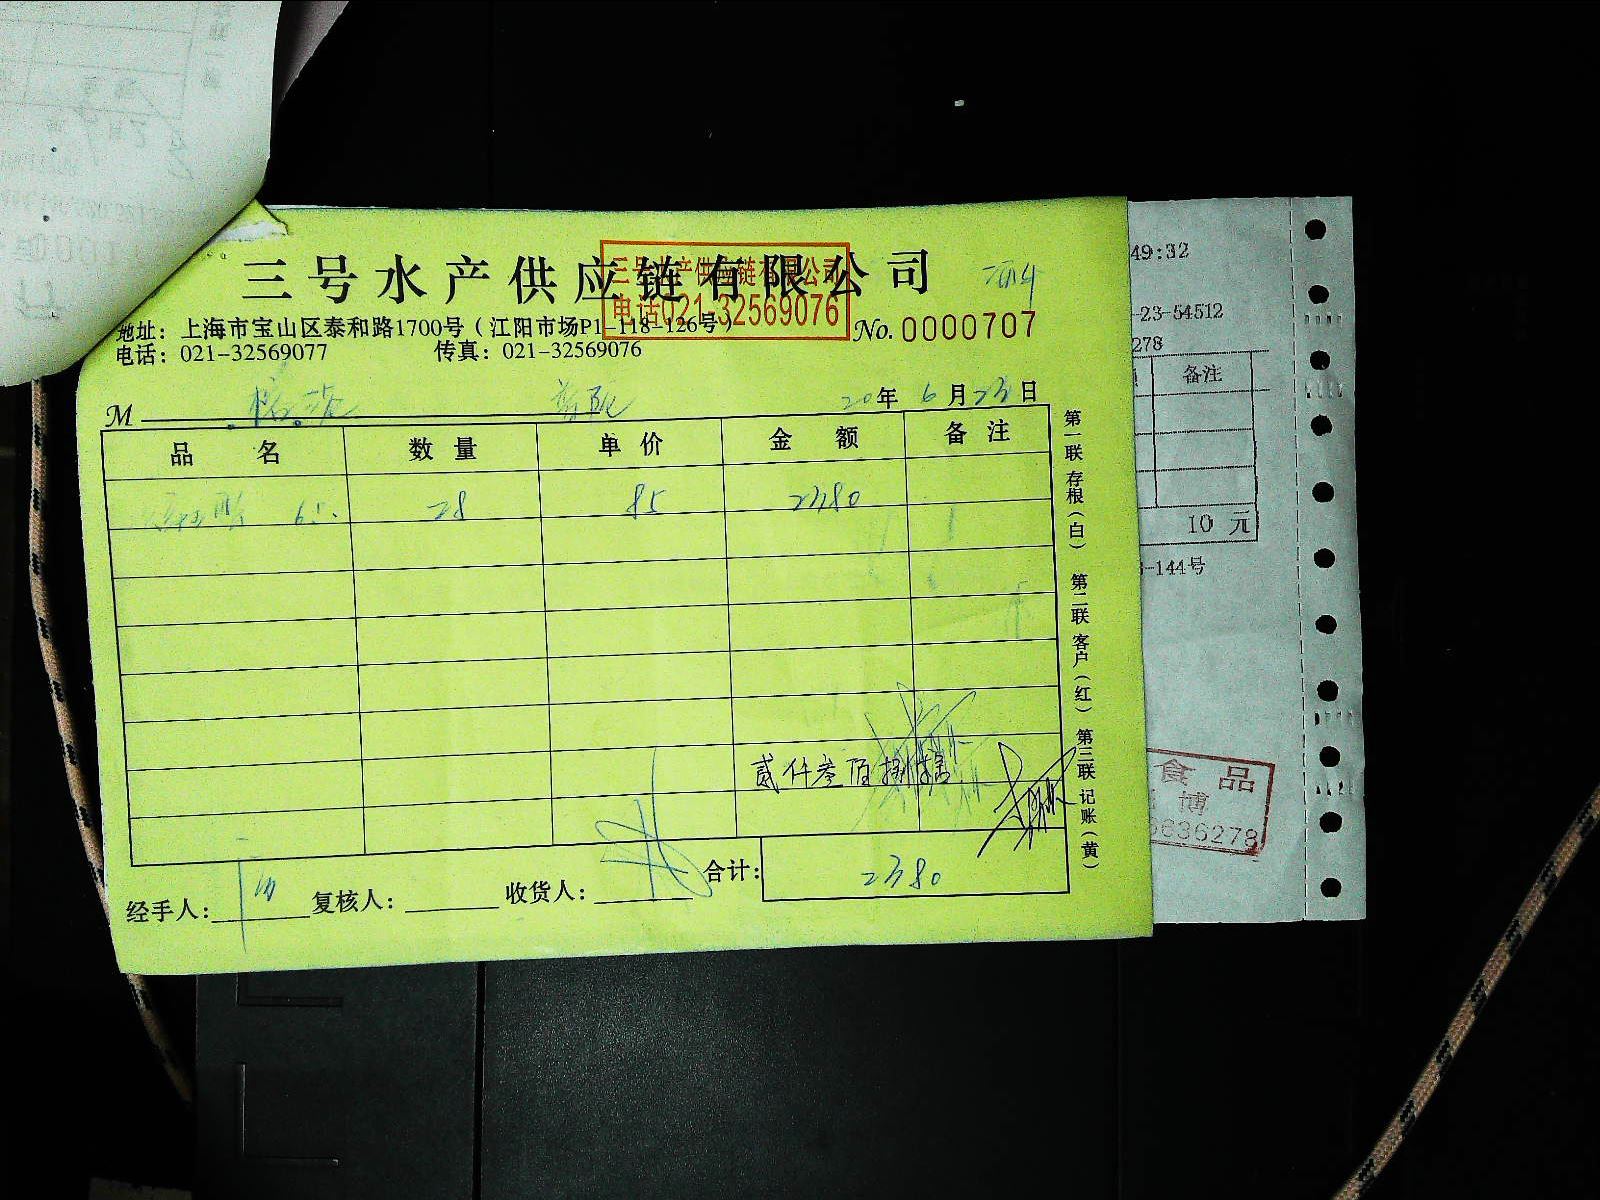 三号水产供应链有限公司
三号水产供应链有限公司
电话021-32569076
地址：上海市宝山区泰和路1700号（江阳市场P1-118-126号）
No. 0000707
电话：021-32569077 传真：021-32569076
M 20年6月23日
品名 数量 单价 金额 备注
65. 28 85 2380
贰仟叁佰捌拾
合计： 2380
经手人： 复核人： 收货人：
第一联 存根（白） 第二联 客户（红） 第三联 记账（黄）
49:32
-23-54512
278
备注
10 元
-144号
食品
博
636278